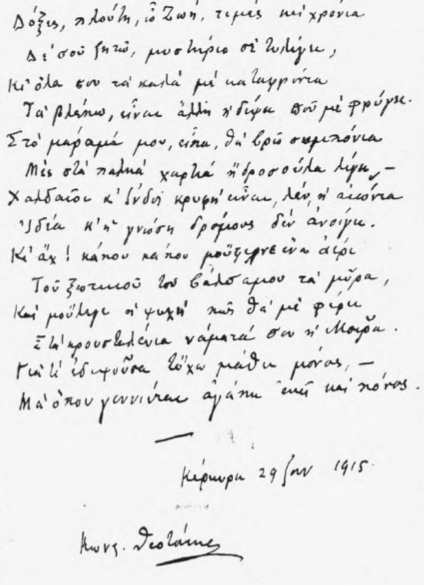 Δόξες, πλούτη, ὦ Ζωή, τιμές καὶ χρόνια
Δὲ σοῦ ζητῶ, μυστήριο σὲ τυλίγει,
Κι' ὅλα σου τὰ καλὰ μὲ καταφρόνια
Τὰ βλέπω, εἶναι ἄλλη ἡ δίψα ποὺ μὲ φρύγει.
Στὸ μάραμά μου, εἶπα, θὰ βρῶ συμπόνια
Μὲς στὰ παλιὰ χαρτιὰ ἢ δροσούλα λίγη, —
Χαλδαῖοι κ' Ἰνδοὶ κρυφὴ εἶναι, λέν, ἡ αἰώνια
Ἰδέα κ' ἡ γνώση δρόμους δὲν ἀνοίγει.
Κι' ἄχ! κάπου κάπου μοὔφερνε ἕνα ἀέρι
Τοῦ ξωτικοῦ του βάλσαμου τὰ μῦρα,
Καὶ μοὔλεγε ἡ ψυχὴ πῶς θὰ μὲ φέρει
Στὰ κρουσταλένια νάματά σου ἡ Μοῖρα.
Γιατί ἐδιψοῦσα τὄχω μάθει μόνος, —
Μὰ ὅπου γεννιέται ἀγάπη ἐκεῖ καὶ πόνος.
Κέρκυρα 29 1915
Κωνσ. Θεοτόκης